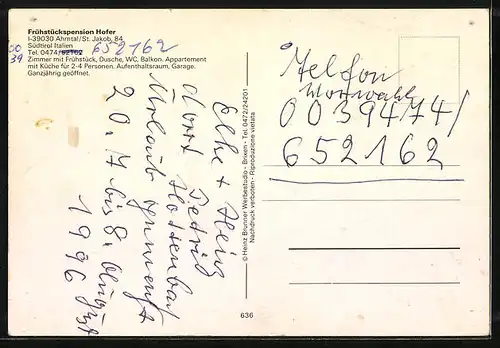 Frühstückspension Hofer
I-39030 Ahrntal/St. Jakob, 84
Südtirol Italien
Tel. 0474/62162 652162
00
39
Zimmer mit Frühstück, Dusche, WC, Balkon. Appartement
mit Küche für 2-4 Personen. Aufenthaltsraum, Garage.
Ganzjährig geöffnet.
Elke + Heinz
Dort
Urlaub gemacht
20. 7 bis 8. August
1996
© Heinz Brunner Werbestudio - Brixen - Tel. 0472/24201
Nachdruck verboten - Riproduzione vietata
636
Telfon
Vorwahl
0039474/
652162